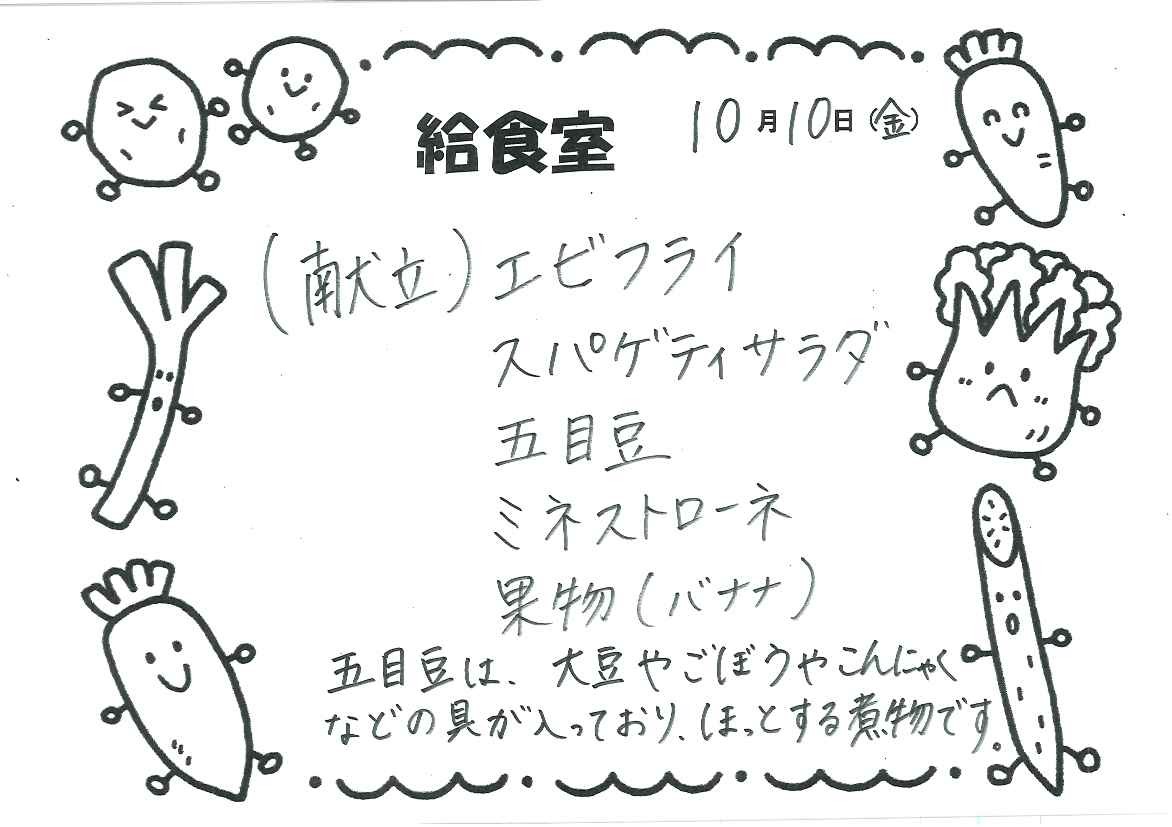 給食室 10月10日(金)
(献立)エビフライ
スパゲティサラダ
五目豆
ミネストローネ
果物(バナナ)
五目豆は、大豆やごぼうやこんにゃく
などの具が入っており、ほっとする煮物です。